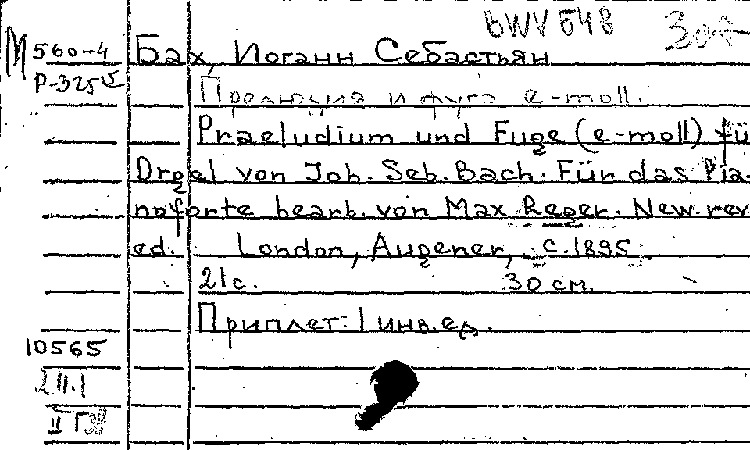 BWV 548
М 560-4 Бах, Иоганн Себастьян
Р-325
Прелюдия и фуга e-moll.
Praeludium und Fuge (e-moll) fü
Orgel von Joh. Seb. Bach. Für das Pia-
noforte bearb. von Max Reger. New rev
ed. London, Augener, c.1895.
21 с. 30 см.
Приплет: 1 инв. ед.
10565